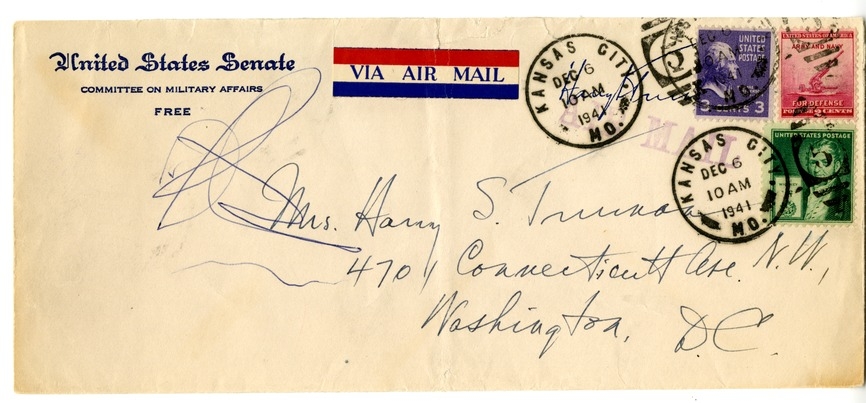 United States Senate
COMMITTEE ON MILITARY AFFAIRS
FREE
VIA AIR MAIL
KANSAS CITY,
DEC 6
10 AM
1941
MO.
UNITED
STATES
POSTAGE
3 CENTS 3
UNITED STATES OF AMERICA
ARMY AND NAVY
FOR DEFENSE
MAIL
KANSAS CITY,
DEC 6
10 AM
1941
MO.
UNITED STATES POSTAGE
Mrs. Harry S. Truman
4701 Connecticutt Ave. N.W.,
Washington, D.C.